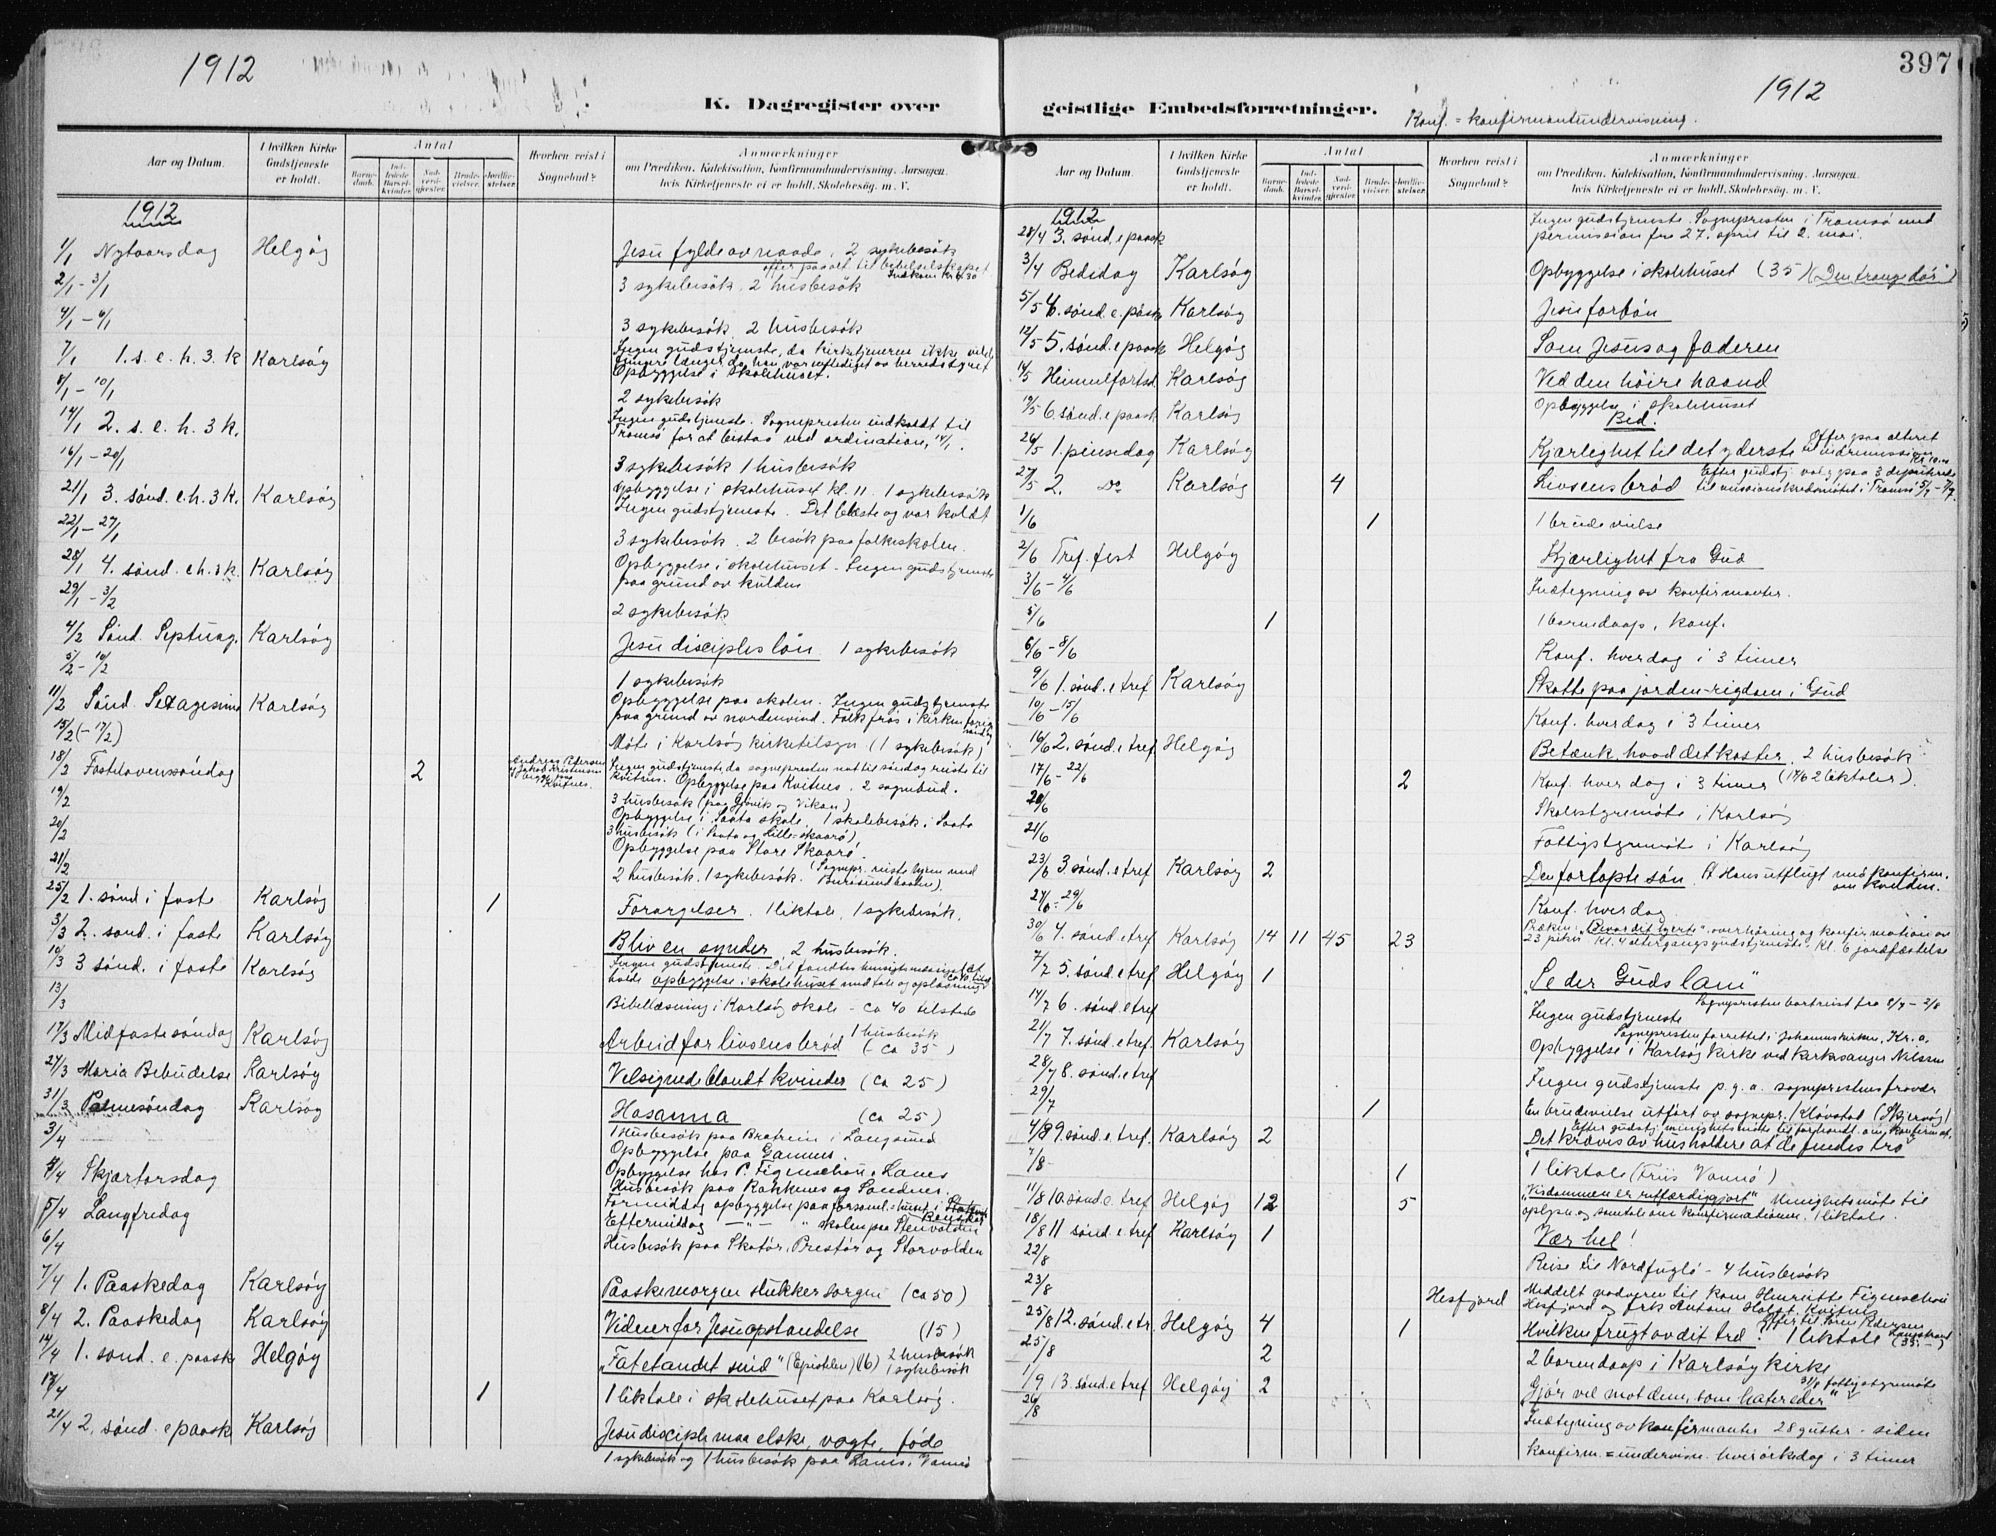 1912
K. Dagregister over
Aar og Datum.
I hvilken Kirke Gudstjeneste er holdt.
Antal
Barnedaab.
Indledede Barselkvinder.
Nadverdgjester.
Brudevielser.
Jordfæstelser.
Hvorhen reist i Sognebud?
Anmærkninger
om Prædiken, Katekisation, Konfirmandundervisning, Aarsagen,
hvis Kirketjeneste ei er holdt, Skolebesøg, m. V.
1912
1/1 Nytaarsdag Helgøy Jesu fylde av naade. 2 sykebesøk
offer paa alt. til bibelselskapet
Indkom Kr 6.30
2/1 - 3/1 3 sykebesøk, 2 husbesøk
4/1 - 6/1 3 sykebesøk 2 husbesøk
7/1 1. s. e. h. 3. k Karlsøy Ingen gudstjeneste, da kirketjeneren ikke vilde
fungere længer, da han var
Opbyggelse i skolehuset.
8/1 - 10/1 2 sykebesøk
14/1 2. s. e. h. 3 k. Ingen gudstjeneste. Sognepresten indkaldt til
Tromsø for at bistaa ved ordination, 14/1.
16/1 - 20/1 3 sykebesøk 1 husbesøk
21/1 3. sønd. e. h. 3 k. Karlsøy Opbyggelse i skolehuset kl. 11. 1 sykebesøk
Ingen gudstjeneste. Det blæste og var koldt
22/1 - 27/1 3 sykebesøk. 2 besøk paa folkeskolen.
28/1 4. sønd. e h. 3 k Karlsøy Opbyggelse i skolehuset. Ingen gudstjeneste
paa grund av kulden
29/1 - 3/2 2 sykebesøk
4/2 Sønd. Septuag. Karlsøy Jesu disciples løn 1 sykebesøk
5/2 - 10/2 1 sykebesøk
11/2 Sønd. Sexagesima Karlsøy Opbyggelse paa skolen. Ingen gudstjeneste
paa grund av nordenvind. Folk frøs i kirken forrige søndag
15/2 (- 17/2) Møte i Karlsøy kirketilsyn (1 sykebesøk)
18/2 Fastelavenssøndag 2 Andreas Petersen
Jakob Kristensen
Kvitnes.
Ingen gudstjeneste, da sognepresten nat til søndag reiste til
Kvitnes. Opbyggelse paa Kvitnes. 2 sognebud.
19/2 3 husbesøk (paa Gjøvik og Vikan)
20/2 Opbyggelse i Saata skole. 1 skolebesøk i Saata
3 husbesøk (i Saata og Lille-Skaarø).
21/2 Opbyggelse paa Store Skaarø.
2 husbesøk. 1 sykebesøk. (Sognepr. reiste hjem med
Burøsundbaaten).
25/2 1. sønd i faste Karlsøy 1 Forargelser. 1 liktale, 1 sykebesøk.
3/3 2. sønd. i faste Karlsøy Bliv en synder 2 husbesøk.
10/3 3 sønd. i faste Karlsøy Ingen gudstjeneste. Det fandtes hensigtsmæssig at
holde opbyggelse i skolehuset med tale og oplæsning
13/3 Bibellæsning i Karlsøy skole - ca 40 tilstede
17/3 Midfastesøndag Karlsøy Arbeid for livsens brød 1 husbesøk (- ca 35-)
24/3 Maria Bebudelse Karlsøy Velsignede blandt kvinder (ca 25)
31/3 Palmesøndag Karlsøy Hosanna (ca 25)
3/4 1 Husbesøk paa Bratrein i Langsund
Opbyggelse paa Gamnes.
4/4 Skjærtorsdag Opbyggelse hos P. Figenschou, Lanes
Husbesøk paa Bakkenes og Sandnes.
5/4 Langfredag Formiddag opbyggelse paa forsaml.=huset i
Eftermiddag — " — " skolen paa Stenvolden
6/4 Husbesøk paa Skatør, Prestør og Storvolden
7/4 1. Paaskedag Karlsøy Paaskemorgen slukker sorgen (ca 50)
8/4 2. Paaskedag Karlsøy Vidner for Jesu opstandelse (15)
14/4 1. sønd. e. paask Helgøy "Fatet andet sind" (Epistlen) (16) 2 husbesøk
1 sykebesøk
17/4 1 1 liktale i skolehuset paa Karlsøy.
21/4 2. sønd. e paask Karlsøy Jesu disciple maa elske, vogte, føde
1 sykebesøk og 1 husbesøk paa Lanes, Vannø
397
1912
geistlige Embedsforretninger.
Konf. = konfirmantundervisning.
Aar og Datum.
I hvilken Kirke Gudstjeneste er holdt.
Antal
Barnedaab.
Indledede Barselkvinder.
Nadverdgjester.
Brudevielser.
Jordfæstelser.
Hvorhen reist i Sognebud?
Anmærkninger
om Prædiken, Katekisation, Konfirmandundervisning, Aarsagen,
hvis Kirketjeneste ei er holdt, Skolebesøg, m. V.
1912
28/4 3. sønd. e paask Ingen gudstjeneste. Sognepresten i Tromsø med
permission fra 27. april til 2. mai.
3/4 Bededag Karlsøy Opbyggelse i skolehuset (35) (Den trange dør)
5/5 4. sønd. e. paask Karlsøy Jesu forbøn
12/5 5. sønd. e paask Helgøy Som Jesus og faderen
16/5 Himmelfartsd. Karlsøy Ved den høire haand
19/5 6. sønd. e paask. Karlsøy Opbyggelse i skolehuset
Bed.
26/5 1. pinsedag Karlsøy Kjærlighet til det yderste Offer paa alteret
til indremissionen Kr 10.00
27/5 2. Do Karlsøy 4 Livsens brød Efter gudstj. valg paa 3 deputerede
til missionskredsmøtet i Tromsø 5/7 - 7/7
1/6 1 1 brudevielse
2/6 Tref. fest Helgøy Kjærlighet fra Gud
3/6 - 4/6 Indtegning av konfirmanter.
5/6 1 1 barnedaap, konf.
6/6 - 8/6 Konf. hverdag i 3 timer
9/6 1. sønd. e tref Karlsøy Skatte paa jorden - rigdom i Gud
10/6 - 15/6 Konf. hverdag i 3 timer
16/6 2. sønd. e tref. Helgøy Betænk, hvad det koster. 2 husbesøk
17/6 - 22/6 2 Konf. hverdag i 3 timer (17/6 2 liktaler).
20/6 Skolestyremøte i Karlsøy
21/6 Fattigstyremøte i Karlsøy
23/6 3. sønd. e tref Karlsøy 2 Den fortapte søn. St Hans utflugt med konfirm.
om kvelden.
24/6 - 29/6 Konf. hverdag
30/6 4. sønd. e tref Karlsøy 14 11 45 23 Præken: "Bevar dit hjerte", overhøring og konfirmation av
23 piker. Kl. 4 altergangsgudstjeneste. Kl. 6 jordfæstelse
7/7 5. sønd e tref Helgøy 1 "Se der Guds lam"
14/7 6. sønd. e tref Sognepresten bortreist fra 8/7 - 2/8
Ingen gudstjeneste
21/7 7. sønd. e tref. Karlsøy Sognepresten forrettet i Johanneskirken, Kr.a.
Opbyggelse i Karlsøy kirke ved kirkesanger Nilssen
28/7 8. sønd. e tref Ingen gudstjeneste p.g.a. sogneprestens fravær
29/7 1 En brudevielse utført av sognepr. Kløvstad (Skjervøy)
4/8 9. sønd. e tref. Karlsøy 2 Efter gudstj. menighetsmøte til forhandl. om konfirmat.
Det kræves av husholdere at de findes tro
7/8 1 1 liktale (Friis Vannø)
11/8 10. sønd. e tref Helgøy 12 5 "Visdommen er retfærdiggjort" Menighetsmøte til
oplysn. og samtale om konfirmationen. 1 liktale.
18/8 11 sønd. e tref Karlsøy 1 Vær hel!
22/8 Reise til Nordfugløy - 4 husbesøk
23/8 Hesfjord Meddelt nadveren til kone Henriette Figenschou
Hesfjord og frk Antone Holst, Kvitnes
25/8 12. sønd. e tr. Helgøy 4 1 Hvilken frugt av dit træ. 1 liktale
25/8 2 2 barnedaap i Karlsøy kirke
1/9 13. sønd. e tref Helgøy 2 31/8 fattigstyremøte
"Gjør vel mot dem, som hater eder"
26/8 Indtegning av konfirmanter 28 gutter - siden
konfirm. = undervisn. hver virkedag i 3 timer